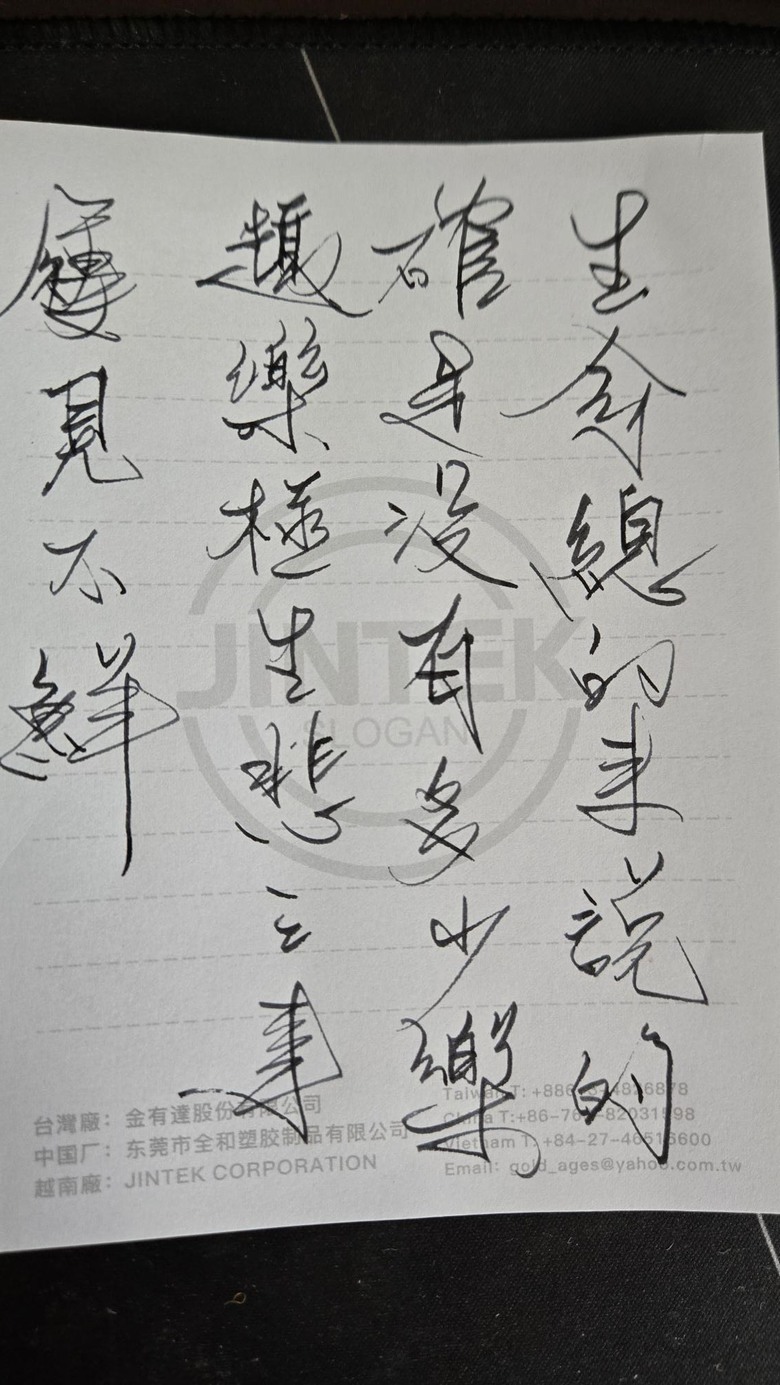 生命總的來說的
確是没有多少樂
趣樂極生悲之事
屢見不鮮
JINTEK
SLOGAN
台灣廠：金有達股份有限公司
中国厂：东莞市全和塑胶制品有限公司
越南廠：JINTEK CORPORATION
Taiwan T: +886
China T:+86-76
Vietnam T: +84-27-46515600
Email: gold_ages@yahoo.com.tw